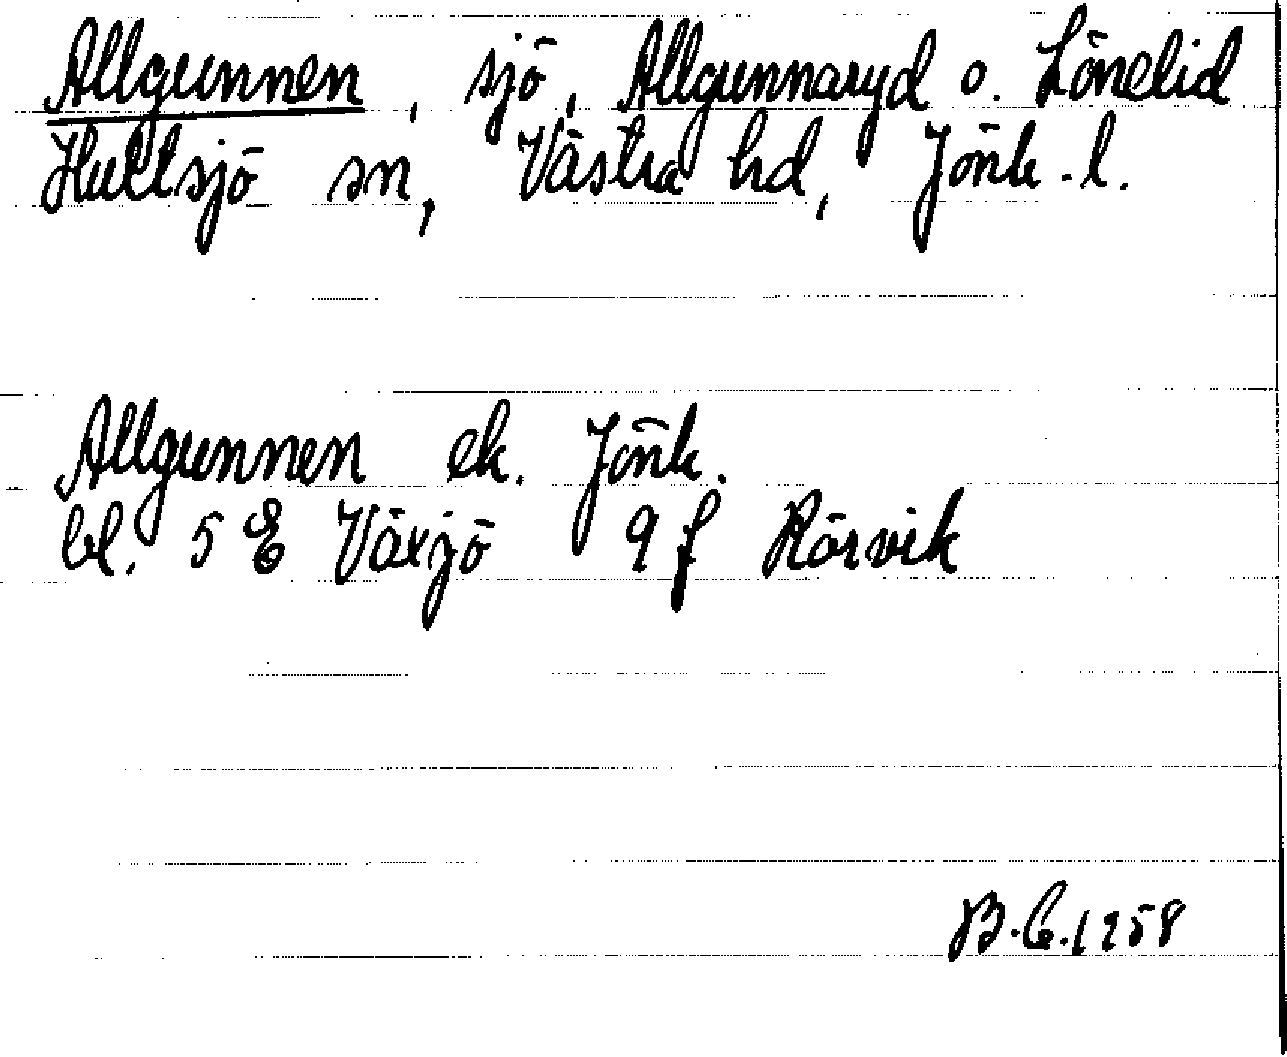 Allgunnen, sjö, Allgunnaryd o. Lönelid
Hultsjö sn, Västra hd, Jönk.l.
Allgunnen ek. Jönk.
bl. 5 E Växjö 9 f Rörvik
B.C. 1958